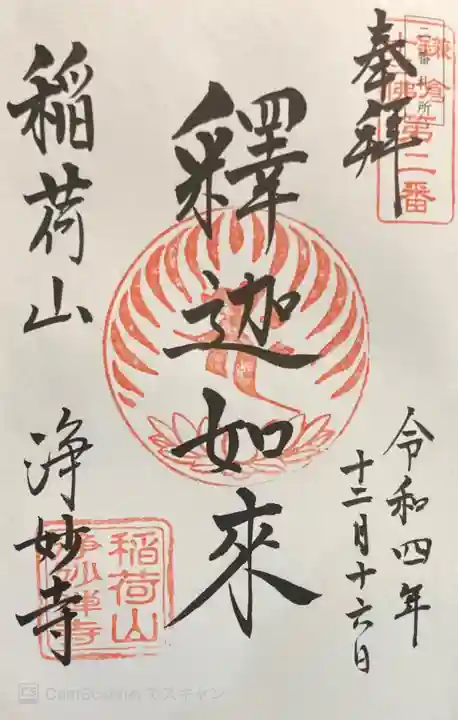 奉拝
鎌倉
十三佛第二番
二番札所
釋迦如来
令和四年
十二月十六日
稲荷山
浄妙寺
稲荷山
浄妙禅寺
CS CamScannerでスキャン